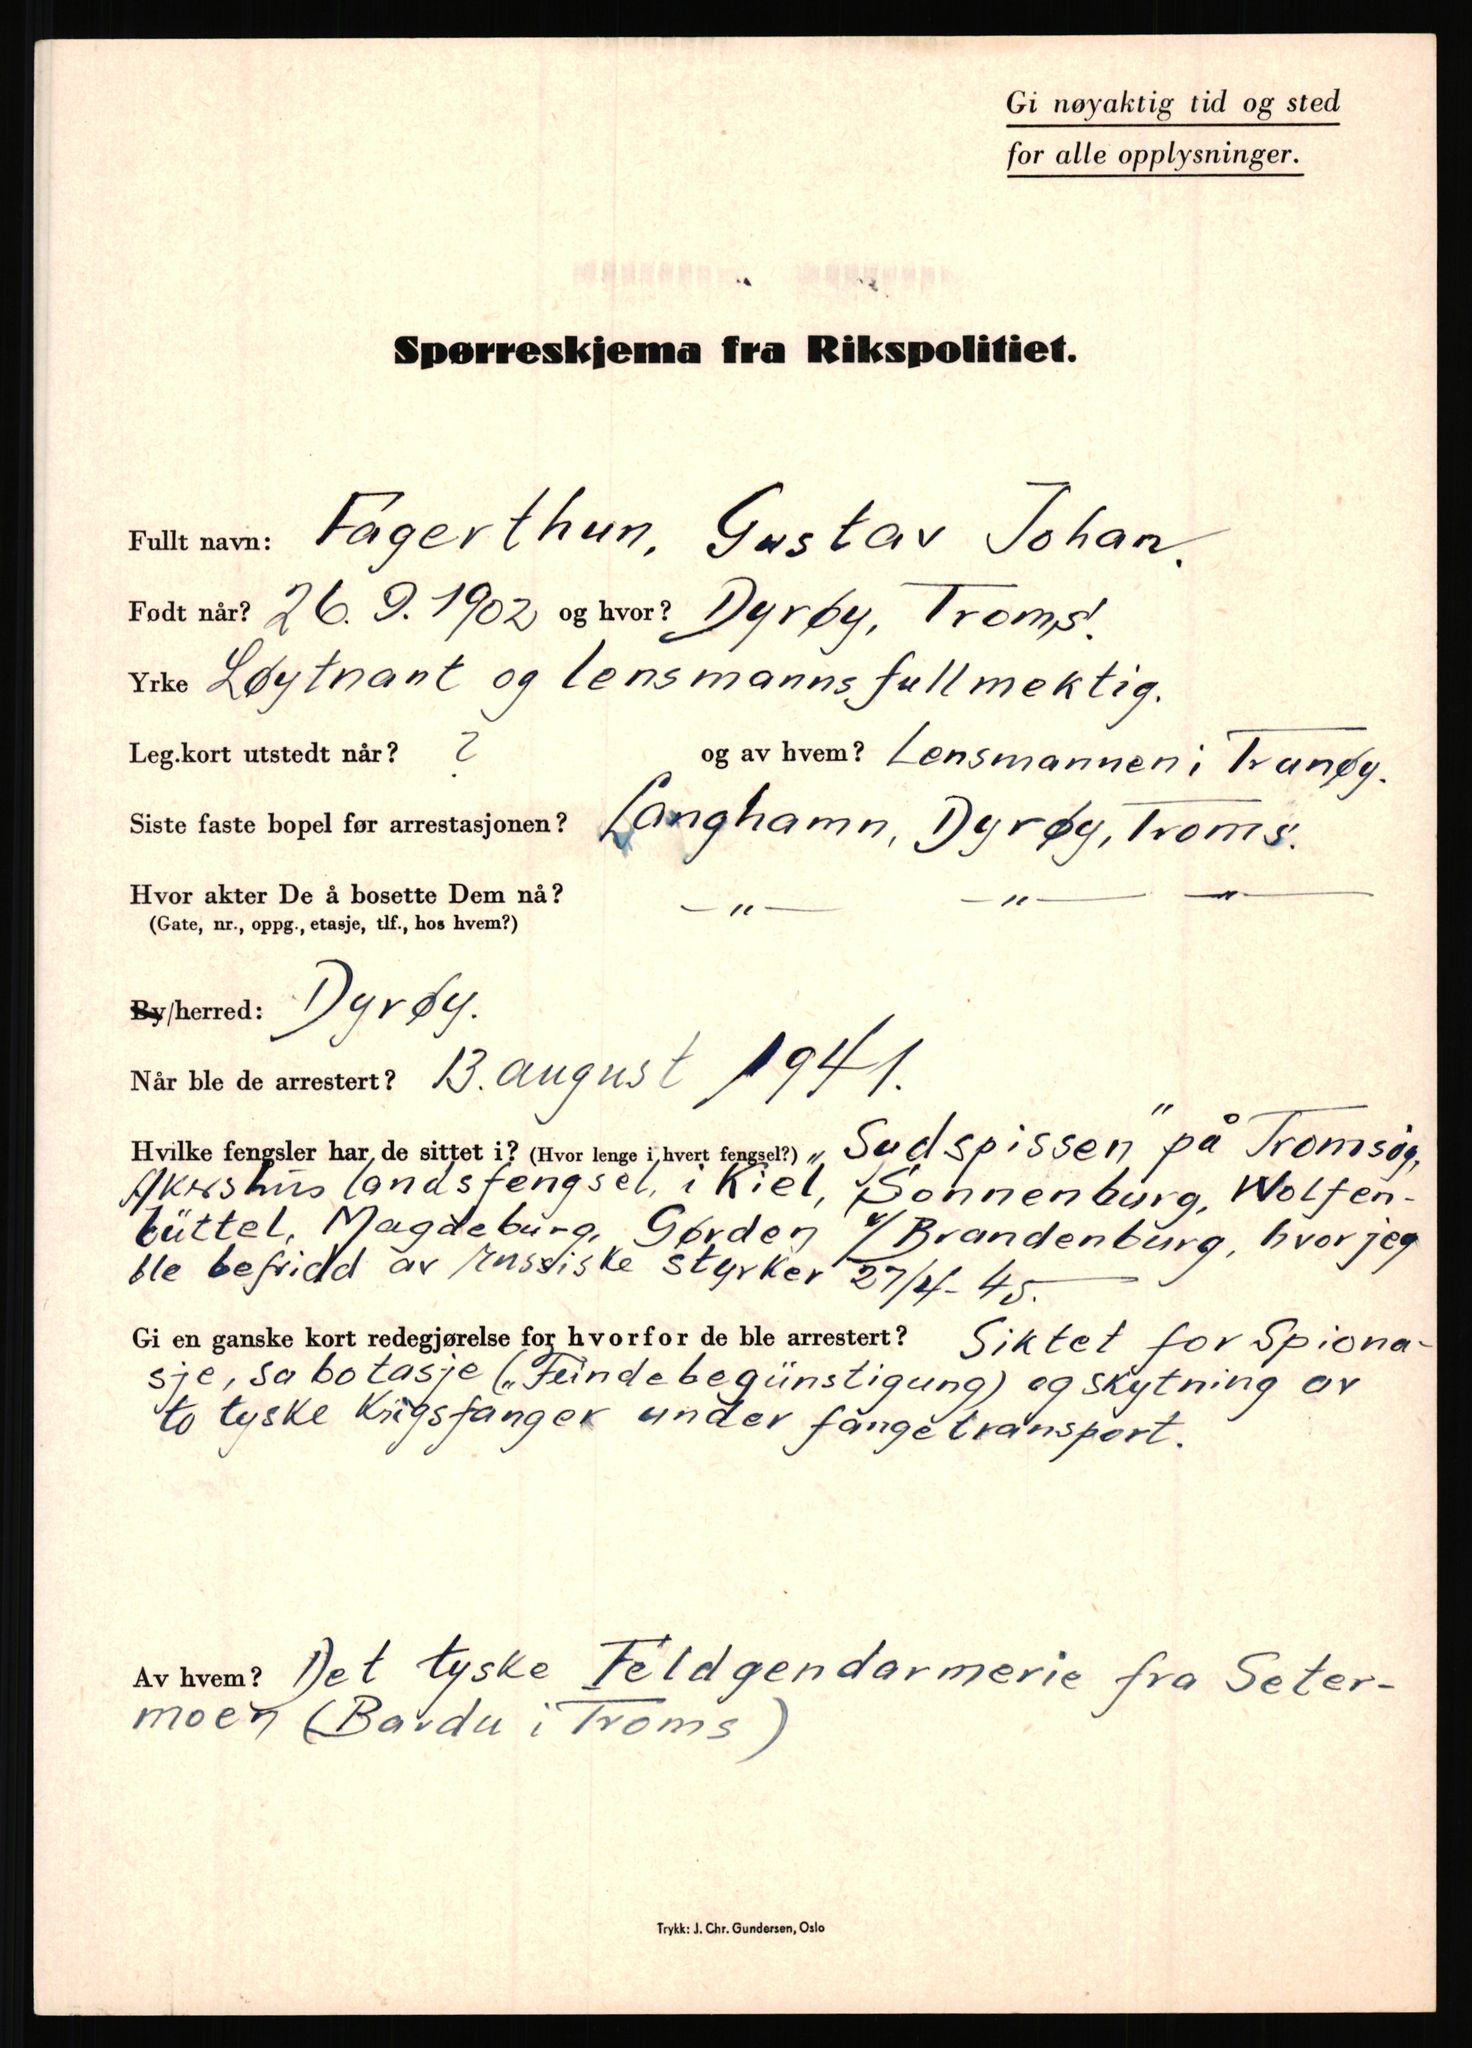 Gi nøyaktig tid og sted
for alle opplysninger.
Spørreskjema fra Rikspolitiet.
Fullt navn: Fagerthun, Gustav Johan.
Født når? 26.9.1902 og hvor? Dyrøy, Troms.
Yrke Løytnant og lensmannsfullmektig.
Leg.kort utstedt når? ? og av hvem? Lensmannen i Tranøy.
Siste faste bopel før arrestasjonen? Langhamn, Dyrøy, Troms.
Hvor akter De å bosette Dem nå? —"— —"— —"—
(Gate, nr., oppg., etasje, tlf., hos hvem?)
By/herred: Dyrøy.
Når ble de arrestert? 13. august 1941.
Hvilke fengsler har de sittet i? (Hvor lenge i hvert fengsel?) „Sydspissen" på Tromsøy,
Akershus landsfengsel, i Kiel, Sonnenburg, Wolfen-
büttel, Magdeburg, Gørden v/Brandenburg, hvor jeg
ble befridd av russiske styrker 27/4-45.
Gi en ganske kort redegjørelse for hvorfor de ble arrestert? Siktet for spiona-
sje, sabotasje („Feindebegünstigung) og skytning av
to tyske krigsfanger under fangetransport.
Av hvem? Det tyske Feldgendarmerie fra Seter-
moen (Bardu i Troms)
Trykk: J. Chr. Gundersen, Oslo